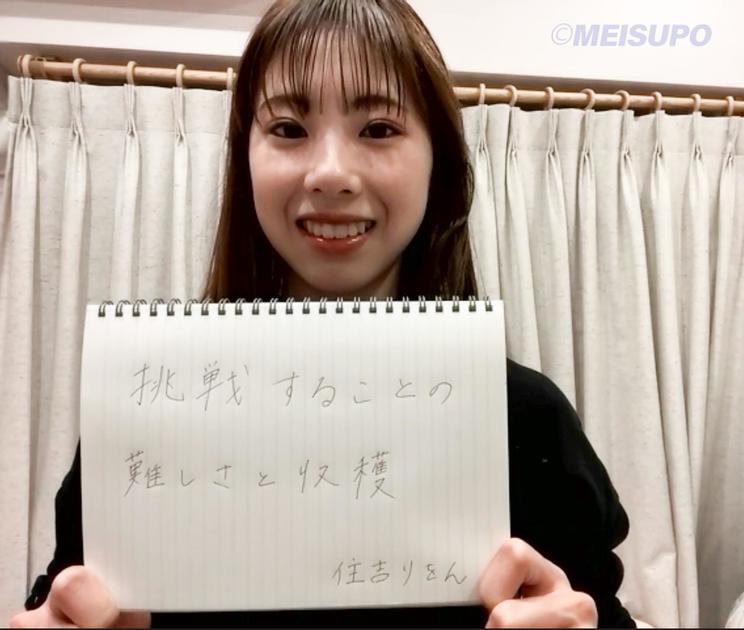 ©MEISUPO
挑戦することの
難しさと収穫
住吉りをん